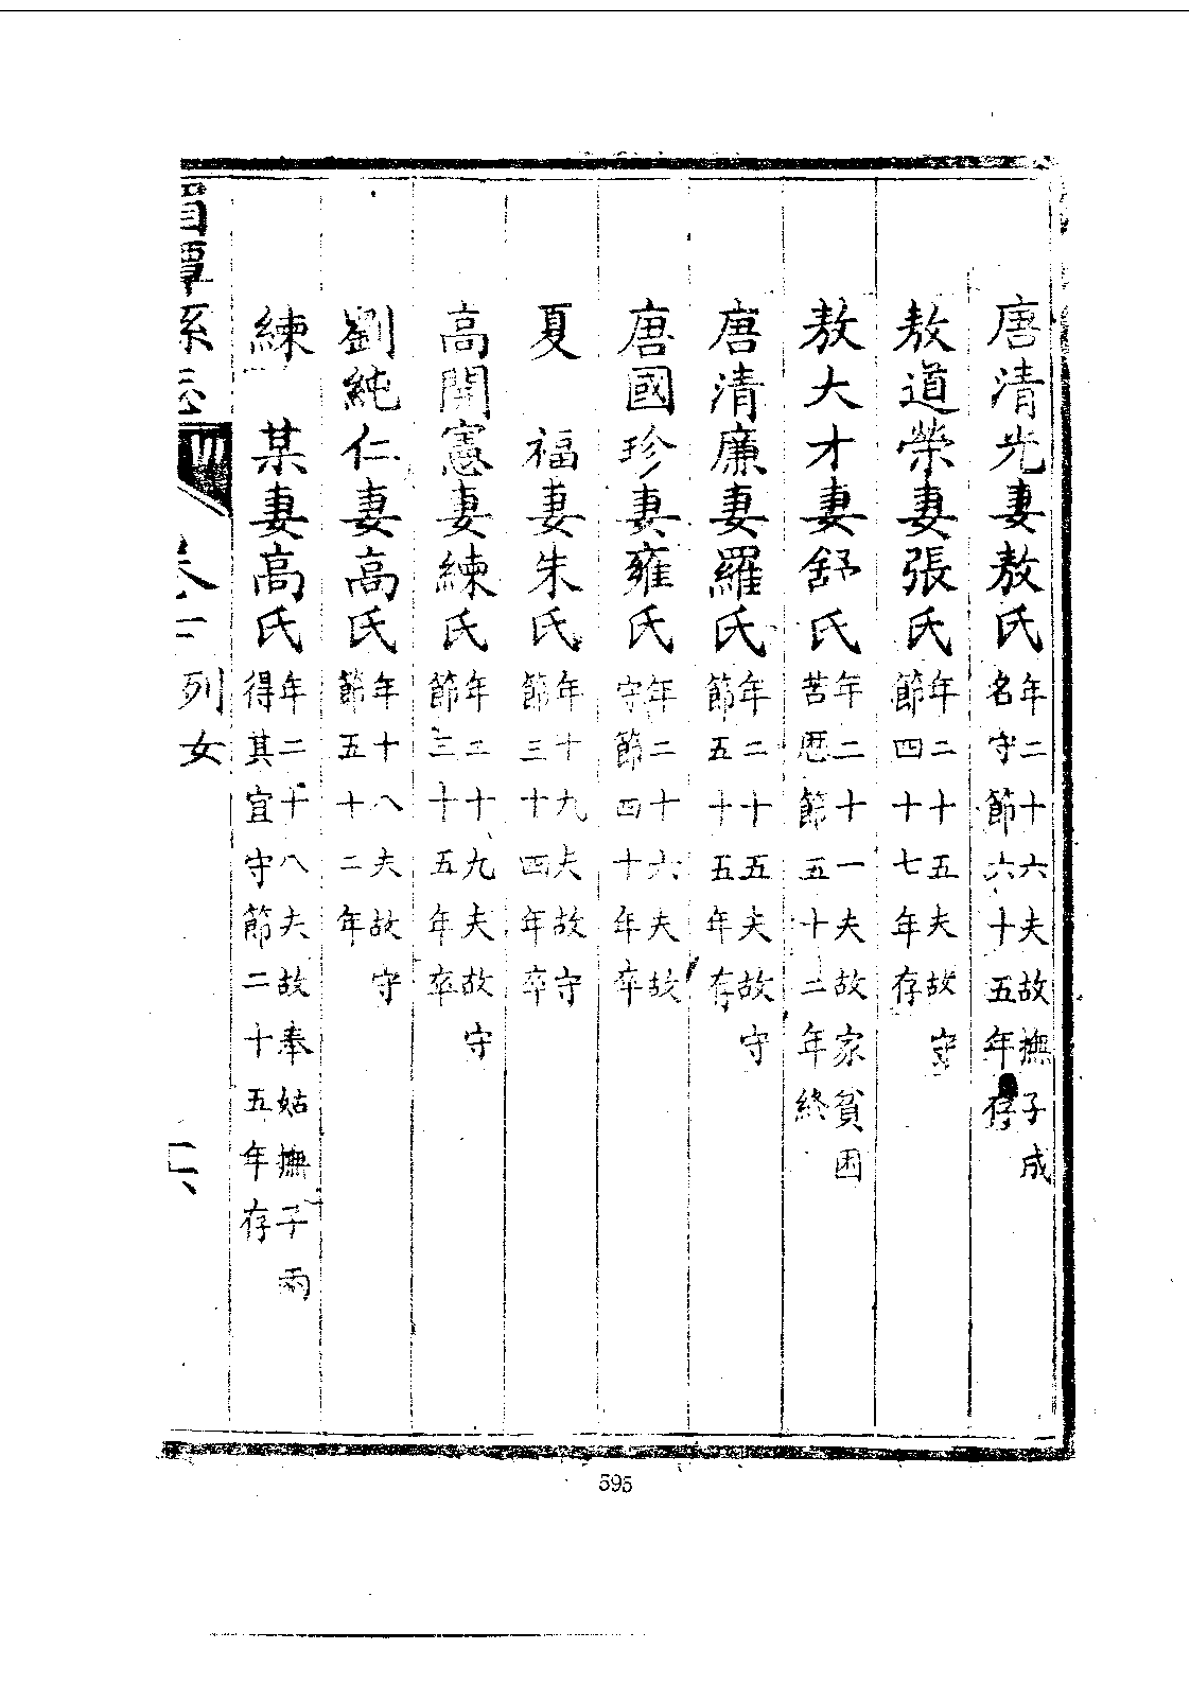 唐清光妻敖氏年二十六夫故撫子成名守節六十五年存
敖道榮妻張氏年二十五夫故守節四十七年存
敖大才妻舒氏年二十一夫故家貧困苦歴節五十二年終
唐清廉妻羅氏年二十五夫故守節五十五年存
唐國珍妻雍氏年二十六夫故守節四十年卒
夏　福妻朱氏年十九夫故守節三十四年卒
高開憲妻練氏年二十九夫故守節三十五年卒
劉純仁妻高氏年十八夫故守節五十二年
練　某妻高氏年二十八夫故奉姑撫子兩得其宜守節二十五年存
湄潭縣志 列女
595